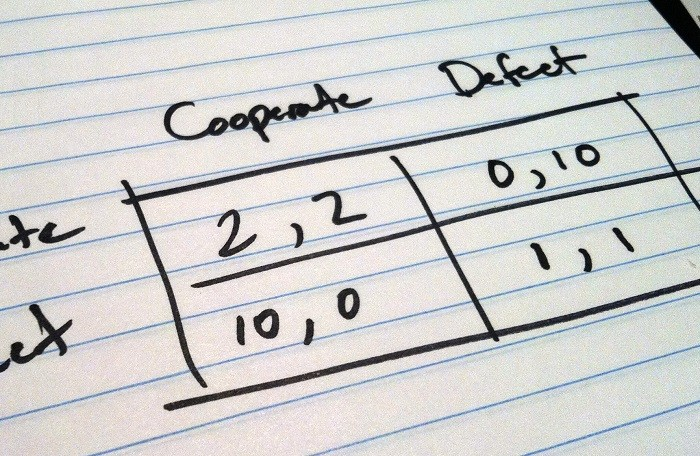 Cooperate Defect
ate 2,2 0,10
ect 10,0 1,1